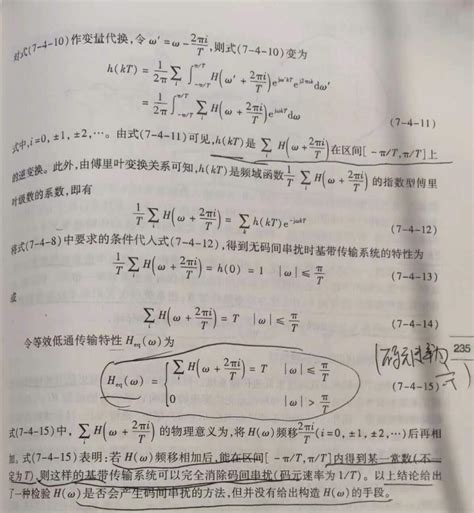 对式(7-4-10)作变量代换,令 ω' = ω - 2πi/T,则式(7-4-10)变为
h(kT) = 1/2π ∑_i ∫_{-π/T}^{π/T} H(ω' + 2πi/T) e^{jω'kT} e^{j2πik} dω'
= 1/2π ∫_{-π/T}^{π/T} ∑_i H(ω + 2πi/T) e^{jωkT} dω
(7-4-11)
式中,i=0, ±1, ±2,…。由式(7-4-11)可见,h(kT)是 ∑_i H(ω + 2πi/T) 在区间[-π/T,π/T]上
的逆变换。此外,由傅里叶变换关系可知,h(kT)是频域函数 1/T ∑_i H(ω + 2πi/T) 的指数型傅里
叶级数的系数,即有
1/T ∑_i H(ω + 2πi/T) = ∑_k h(kT) e^{-jωkT} (7-4-12)
将式(7-4-8)中要求的条件代入式(7-4-12),得到无码间串扰时基带传输系统的特性为
1/T ∑_i H(ω + 2πi/T) = h(0) = 1 |ω| ≤ π/T (7-4-13)
或
∑_i H(ω + 2πi/T) = T |ω| ≤ π/T (7-4-14)
令等效低通传输特性 H_eq(ω)为
235
H_eq(ω) = { ∑_i H(ω + 2πi/T) = T |ω| ≤ π/T
0 |ω| > π/T
(7-4-15)
式(7-4-15)中, ∑_i H(ω + 2πi/T) 的物理意义为,将 H(ω)频移 2πi/T (i=0, ±1, ±2,…)后再相
加。式(7-4-15)表明:若 H(ω)频移相加后,能在区间[-π/T,π/T]内得到某一常数(不一
定为T),则这样的基带传输系统可以完全消除码间串扰(码元速率为1/T)。以上结论给出
了一种检验 H(ω)是否会产生码间串扰的方法,但并没有给出构造 H(ω)的手段。